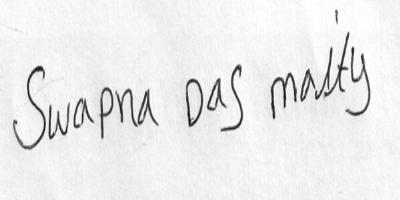 Swapna Das maity